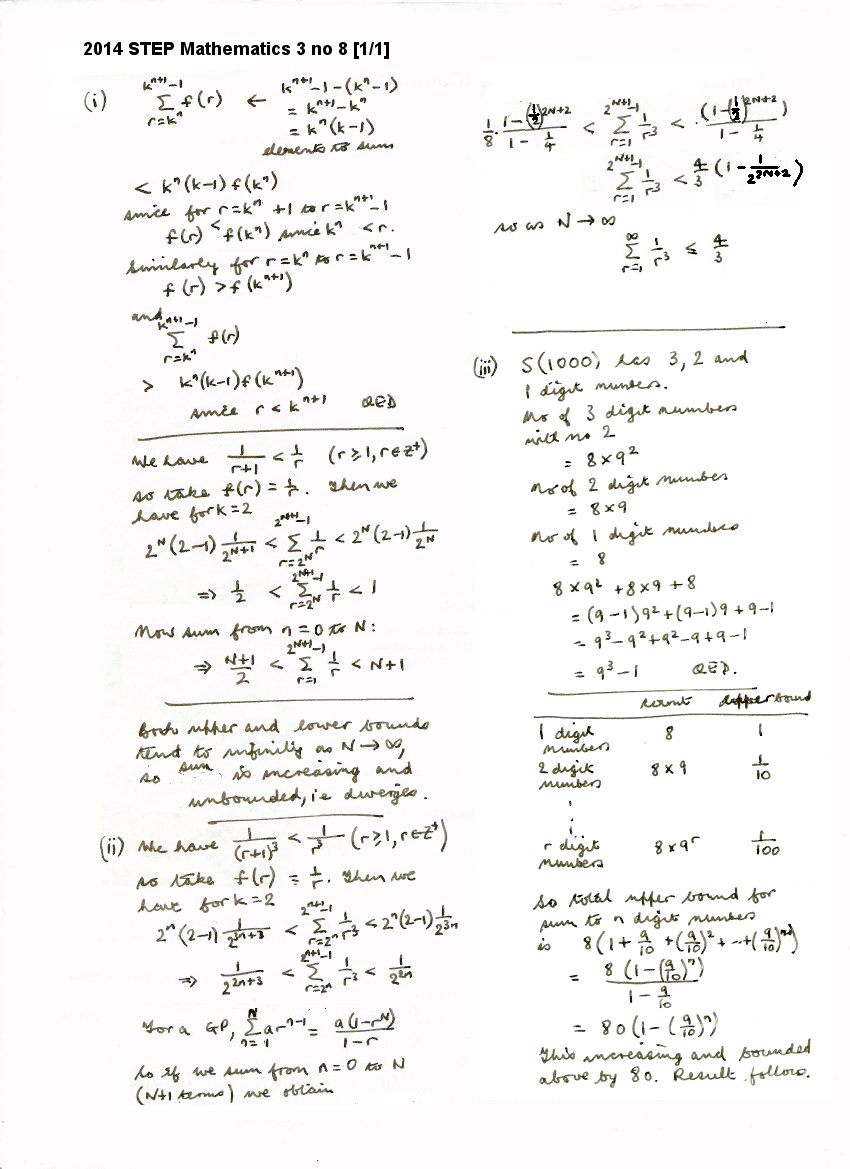 2014 STEP Mathematics 3 no 8 [1/1]
(i) \sum_{r=k^n}^{k^{n+1}-1} f(r) ← k^{n+1}-1-(k^n-1)
= k^{n+1}-k^n
= k^n(k-1)
elements to sum
< k^n(k-1)f(k^n)
since for r=k^n+1 to r=k^{n+1}-1
f(r) < f(k^n) since k^n < r.
Similarly for r=k^n to r=k^{n+1}-1
f(r) > f(k^{n+1})
and
\sum_{r=k^n}^{k^{n+1}-1} f(r)
> k^n(k-1)f(k^{n+1})
since r < k^{n+1} QED
We have \frac{1}{r+1} < \frac{1}{r} (r≥1, r∈Z^+)
so take f(r) = \frac{1}{r}. Then we
have for k=2
2^N(2-1)\frac{1}{2^{N+1}} < \sum_{r=2^N}^{2^{N+1}-1} \frac{1}{r} < 2^N(2-1)\frac{1}{2^N}
⇒ \frac{1}{2} < \sum_{r=2^N}^{2^{N+1}-1} \frac{1}{r} < 1
Now sum from n=0 to N:
⇒ \frac{N+1}{2} < \sum_{r=1}^{2^{N+1}-1} \frac{1}{r} < N+1
Both upper and lower bounds
tend to infinity as N→∞,
so sum is increasing and
unbounded, i.e diverges.
(ii) We have \frac{1}{(r+1)^3} < \frac{1}{r^3} (r≥1, r∈Z^+)
so take f(r) = \frac{1}{r}. Then we
have for k=2
2^n(2-1)\frac{1}{2^{3n+3}} < \sum_{r=2^n}^{2^{n+1}-1} \frac{1}{r^3} < 2^n(2-1)\frac{1}{2^{3n}}
⇒ \frac{1}{2^{2n+3}} < \sum_{r=2^n}^{2^{n+1}-1} \frac{1}{r^3} < \frac{1}{2^{2n}}
For a GP, \sum_{n=1}^{N} ar^{n-1} = \frac{a(1-r^N)}{1-r}
So if we sum from n=0 to N
(N+1 terms) we obtain
\frac{1}{8}.\frac{1-(\frac{1}{2})^{2N+2}}{1-\frac{1}{4}} < \sum_{r=1}^{2^{N+1}-1} \frac{1}{r^3} < \frac{(1-(\frac{1}{2})^{2N+2})}{1-\frac{1}{4}}
\sum_{r=1}^{2^{N+1}-1} \frac{1}{r^3} < \frac{4}{3}(1-\frac{1}{2^{2N+2}})
so as N→∞
\sum_{r=1}^{∞} \frac{1}{r^3} ≤ \frac{4}{3}
(iii) S(1000) has 3, 2 and
1 digit numbers.
No of 3 digit numbers
with no 2
= 8×9^2
No of 2 digit numbers
= 8×9
No of 1 digit numbers
= 8
8×9^2 +8×9 +8
= (9-1)9^2+(9-1)9+9-1
= 9^3-9^2+9^2-9+9-1
= 9^3-1 QED.
count upper bound
1 digit numbers 8 1
2 digit numbers 8×9 \frac{1}{10}
⋮
r digit numbers 8×9^r \frac{1}{100}
So total upper bound for
sum to n digit numbers
is 8(1+\frac{9}{10}+(\frac{9}{10})^2+...+(\frac{9}{10})^{n-1})
= \frac{8(1-(\frac{9}{10})^n)}{1-\frac{9}{10}}
= 80(1-(\frac{9}{10})^n)
This increasing and bounded
above by 80. Result follows.